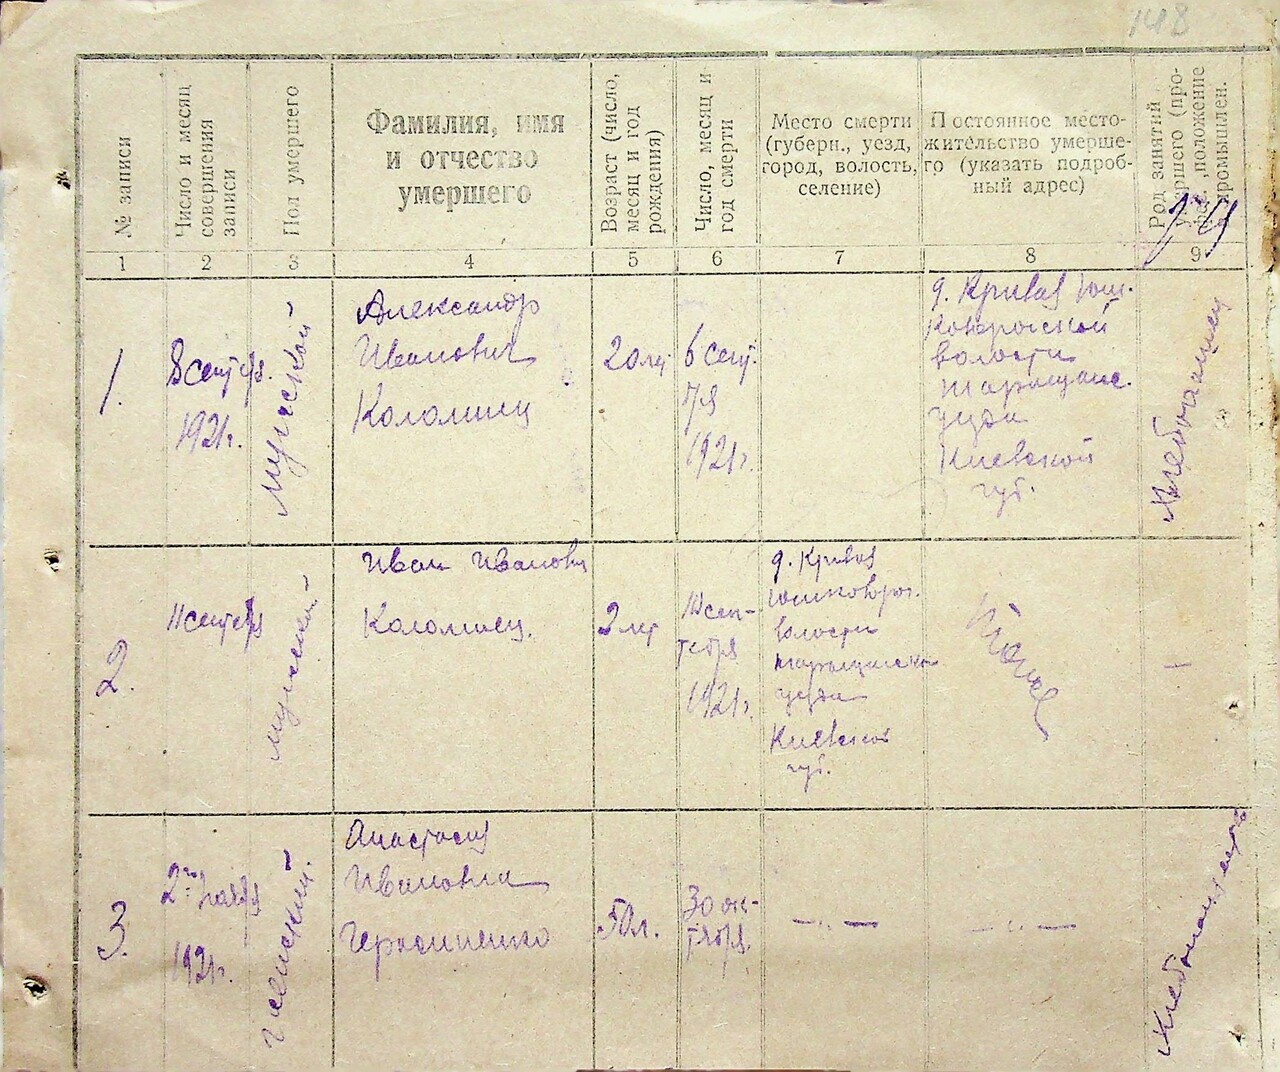 148
№ записи
Число и месяц
совершения
записи
Пол умершего
Фамилия, имя
и отчество
умершего
Возраст (число,
месяц и год
рождения)
Число, месяц и
год смерти
Место смерти
(губерн., уезд,
город, волость,
селение)
Постоянное место-
жительство умерше-
го (указать подроб-
ный адрес)
Род занятий
умершего (про-
положение
в промышлен.
1 2 3 4 5 6 7 8 9
1.
8 сентября
1921 г.
мужской
Александр
Иванович
Коломиец
20 лет
6 сент.
1921 г.
д. Кривая
волости
Таращанс.
уезда
Киевской
губ.
Хлебопашец
2.
11 сентября
мужской
Иван Иванович
Коломиец.
2 лет
11 сен-
тября
1921 г.
д. Кривая
Юшковорог.
волости
Таращанско
уезда
Киевской
губ.
Тоже
—
3.
2го ноября
1921 г.
женский
Анастасия
Ивановна
50 л.
30 ок-
тября.
— „ —
— „ —